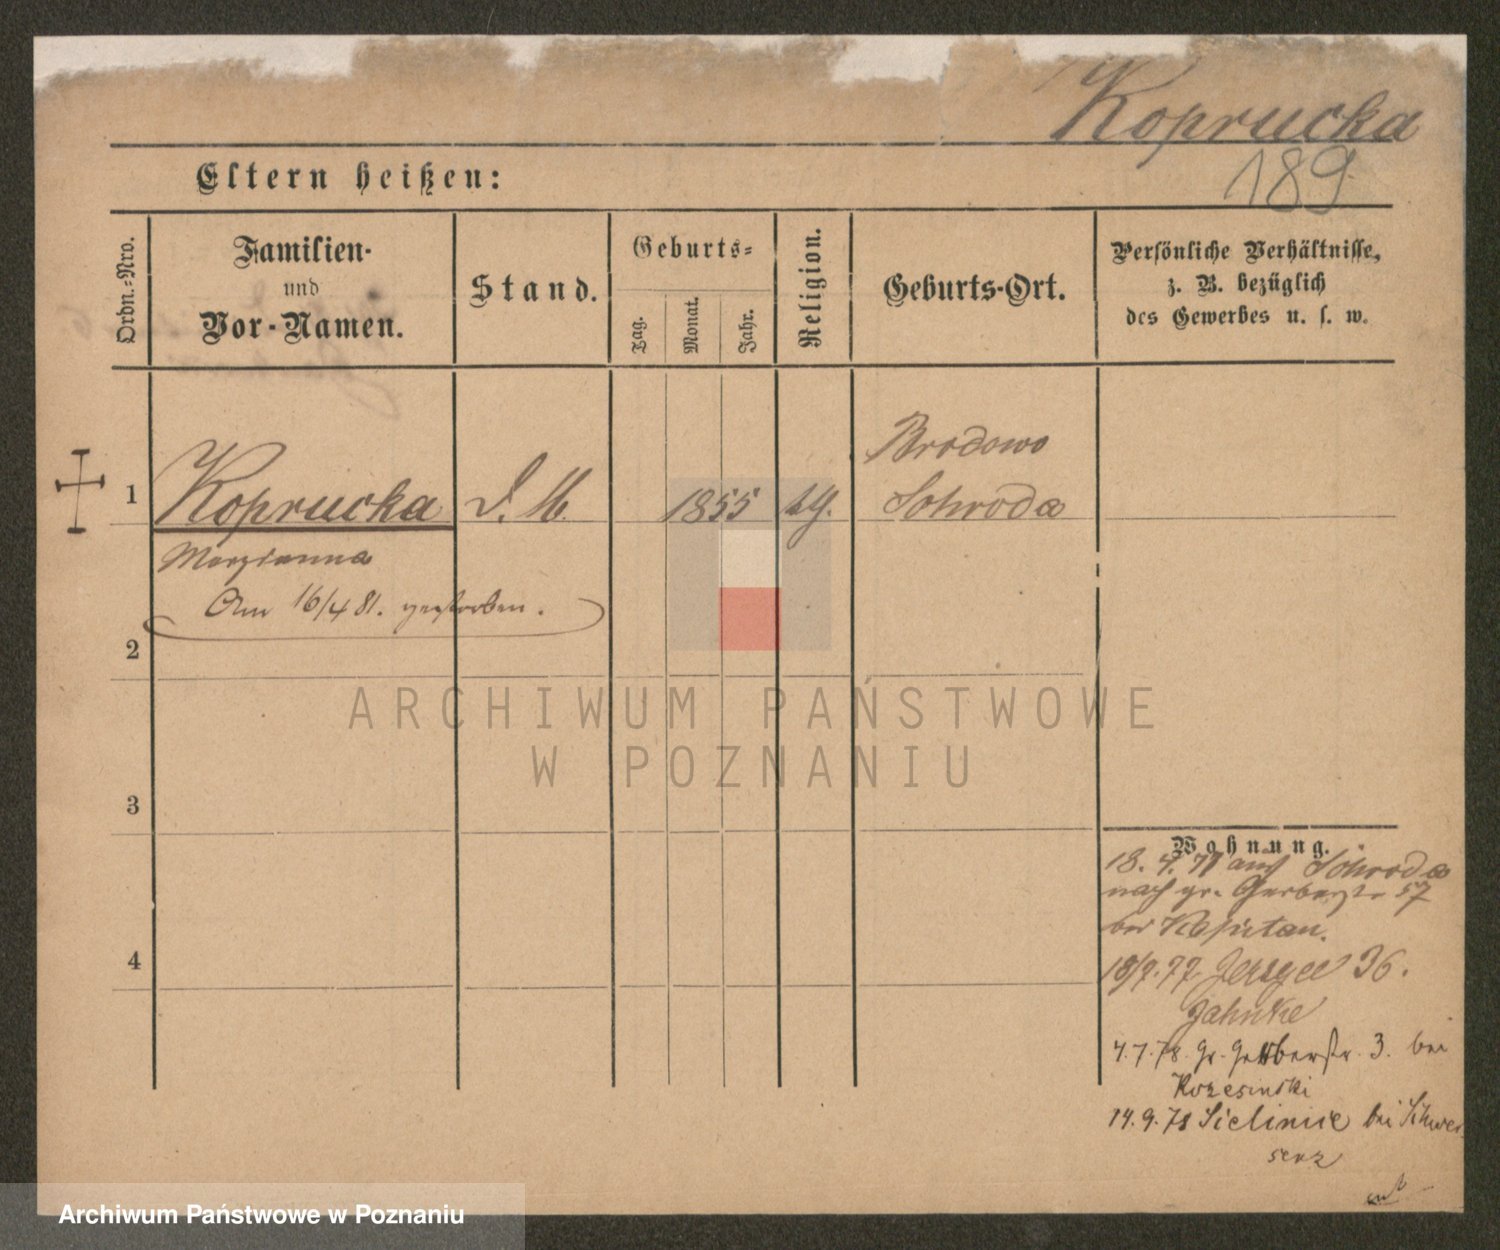 Koprucka
189
Eltern heißen:
Ordn.-Nro.
Familien-
und
Vor-Namen.
Stand.
Geburts-
Tag.
Monat.
Jahr.
Religion.
Geburts-Ort.
Persönliche Verhältnisse,
z. B. bezüglich
des Gewerbes u. s. w.
1
Koprucka
D. M.
1855
kth.
Brodowo
Schroda
Maryianna
Am 16/4 81. gestorben.
2
3
4
Wohnung.
18. 4. 77 aus Schroda
nach gr. Gerberstr 57
bei Kapitan.
18/9. 77 Jersyce 36.
Jahnke
4.7.78. Gr. Gerberstr. 3. bei
Krzesinski
14.9.78 Sielinie bei Schwer-
senz
ARCHIWUM PAŃSTWOWE
W POZNANIU
Archiwum Państwowe w Poznaniu